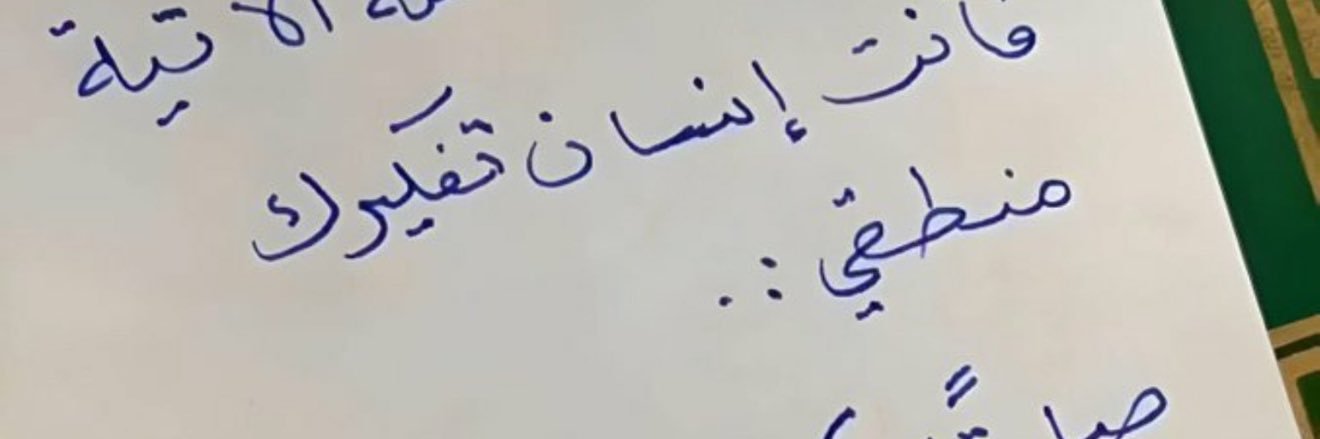 الآتية
فأنت إنسان تفكيرك
منطقي :.